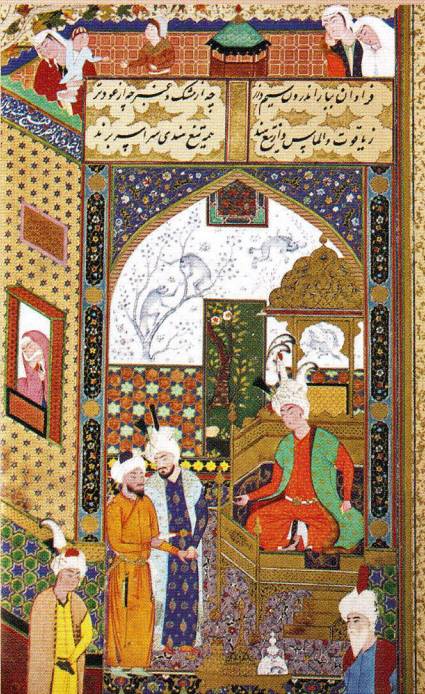 فراوان ببار اندرون سیم و زر چه از مشک و عنبر چه از عود تر
ز یاقوت و الماس و از تیغ هند همه تیغ هندی سراسر پرند